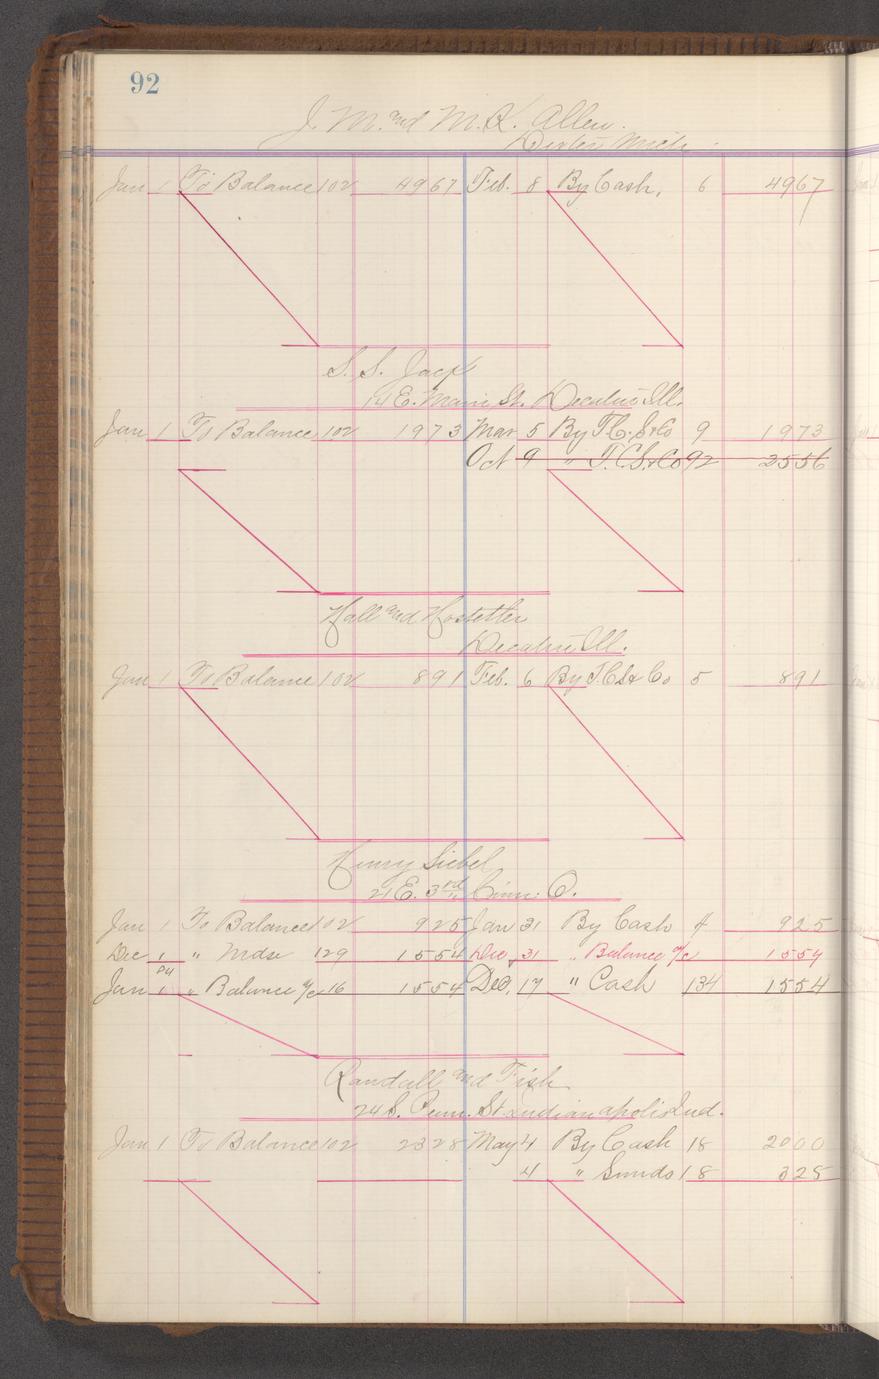 92
J. M. and M. K. Allen.
Dexter Mich.
Jan 1 To Balance 102 4967 Feb. 8 By Cash, 6 4967
S. S. Jack
14 E. Main St. Decatur Ill.
Jan 1 To Balance, 102 1973 Mar 5 By T. C. S & Co 9 1973
Oct 9 " T. C. S. & Co 92 2556
Hall and Hostetler
Decatur Ill.
Jan 1 To Balance 102 891 Feb. 6 By T. C. S & Co 5 891
Henry Siebel
21 E. 3rd Cinn. O.
Jan 1 To Balance 102 925 Jan 31 By Cash 4 925
Dec 1 " Mdse 129 1554 Dec, 31 " Balance a/c 1554
Jan 1 " Balance a/c 16 1554 Dec, 17 " Cash 134 1554
Randall and Fish
24 S. Penn. St Indianapolis Ind.
Jan 1 To Balance 102 2328 May 4 By Cash 18 2000
4 " Sunds 18 328